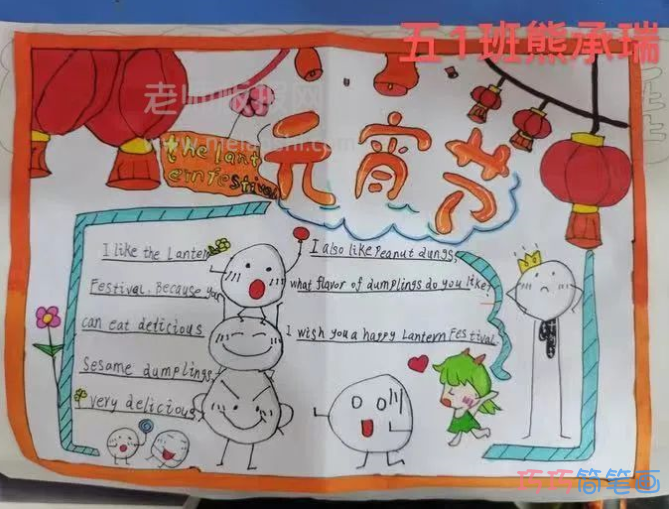 五1班熊承瑞
老师板报网
the lant
ern festival
元宵节
I like the Lantern
Festival. Because you
can eat delicious
Sesame dumplings,
very delicious,
I also like Peanut dungs,
what flavor of dumplings do you like?
I wish you a happy Lantern Festival
巧巧简笔画